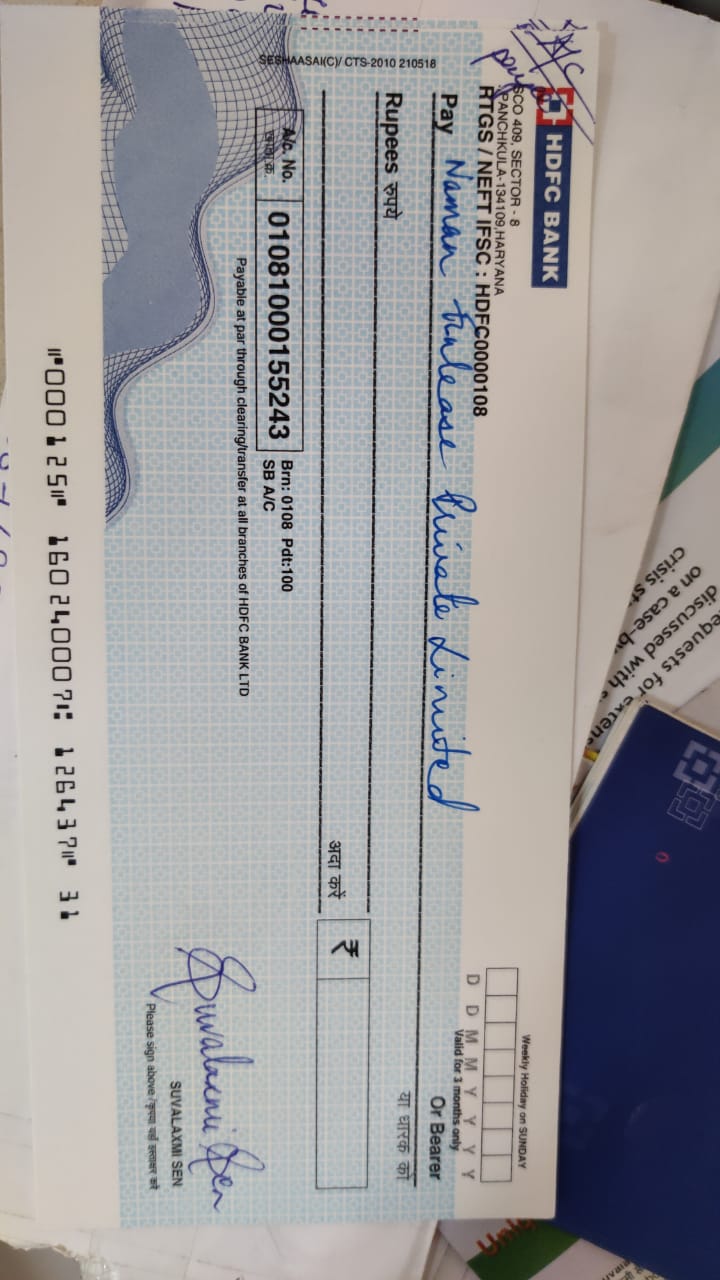 A/C
payee
HDFC BANK
SCO 409, SECTOR - 8
PANCHKULA-134109,HARYANA
RTGS / NEFT IFSC : HDFC0000108
Weekly Holiday on SUNDAY
D D M M Y Y Y Y
Valid for 3 months only
Pay Naman Finlease Private Limited Or Bearer
या धारक को
Rupees रुपये
अदा करें ₹
A/c. No. 01081000155243
Brn: 0108 Pdt:100
SB A/C
Payable at par through clearing/transfer at all branches of HDFC BANK LTD
SESHAASAI(C)/ CTS-2010 210518
Suvalaxmi Sen
SUVALAXMI SEN
Please sign above /कृपया यहाँ हस्ताक्षर करें
⑈000125⑈ 160240007⑆ 126437⑈ 31
equests for exten
discussed with
on a case-b
crisis s